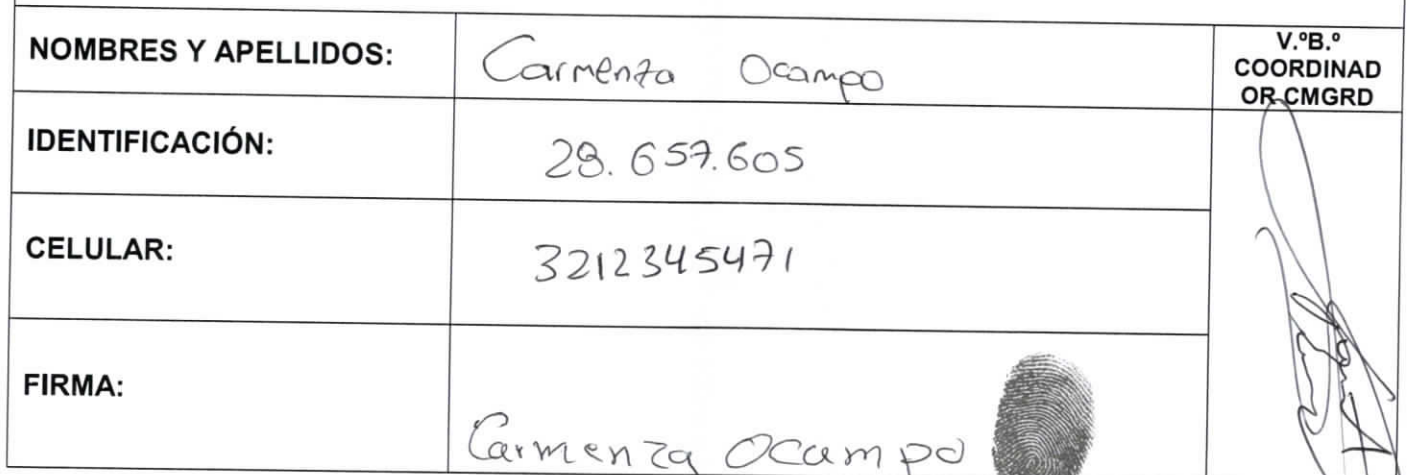 NOMBRES Y APELLIDOS: Carmenza Ocampo
V.ºB.º
COORDINAD
OR CMGRD
IDENTIFICACIÓN: 28.657.605
CELULAR: 3212345471
FIRMA: Carmenza Ocampo